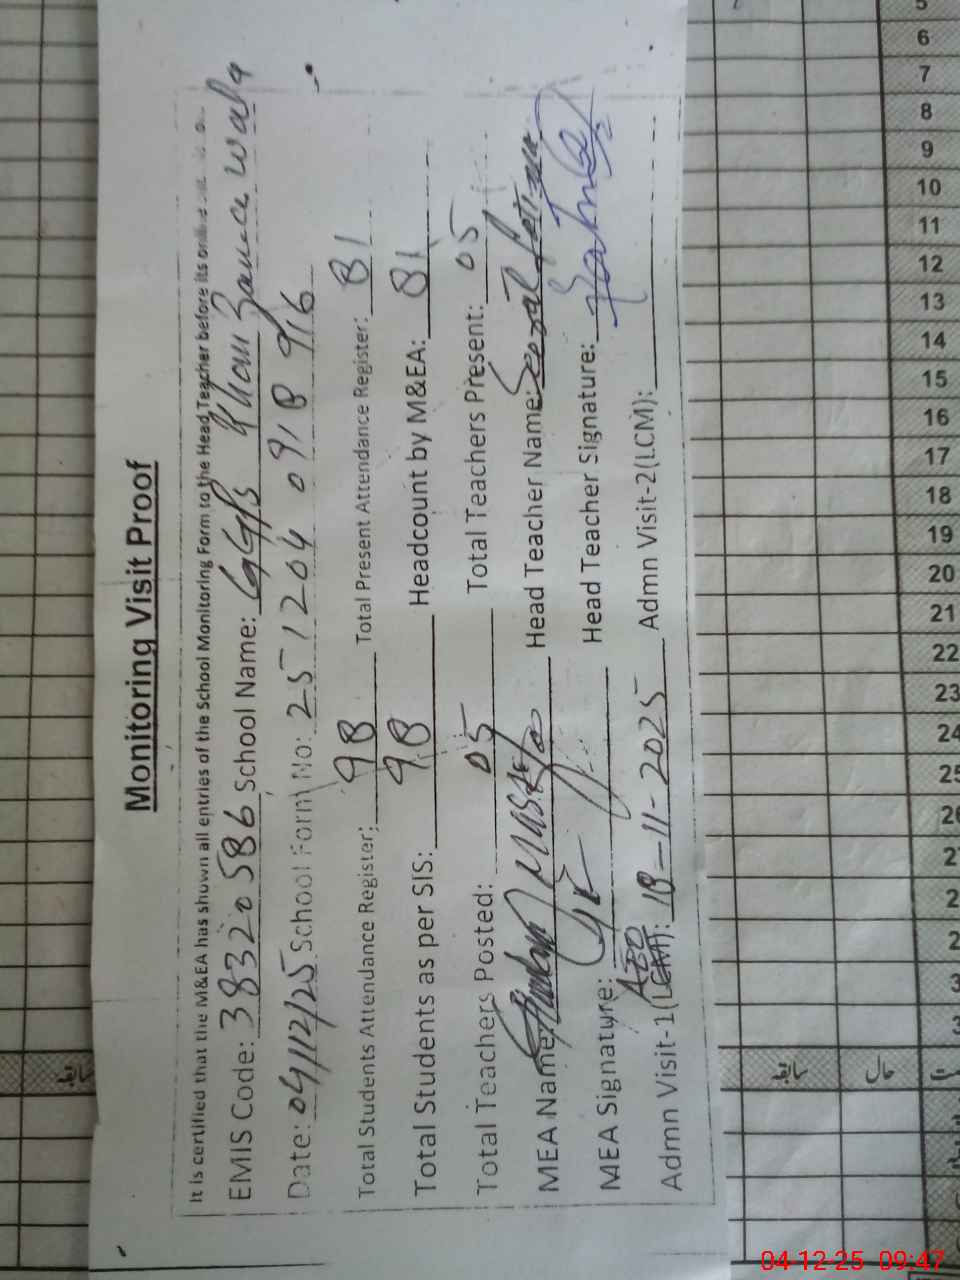 Monitoring Visit Proof
It is certified that the M&EA has shown all entries of the School Monitoring Form to the Head Teacher before its
EMIS Code: 38320586 School Name: GGPS Khan Zaman wala
Date: 04/12/25 School Form No: 251204 0918 916
Total Students Attendance Register: 98 Total Present Attendance Register: 81
Total Students as per SIS: 98 Headcount by M&EA: 81
Total Teachers Posted: 05 Total Teachers Present: 05
MEA Name: Head Teacher Name:
MEA Signature: Head Teacher Signature:
Admn Visit-1(LCM): 18-11-2025 Admn Visit-2(LCM):
5
6
7
8
9
10
11
12
13
14
15
16
17
18
19
20
21
22
23
24
25
سابقہ
سابقہ
حال
04-12-25 09:47